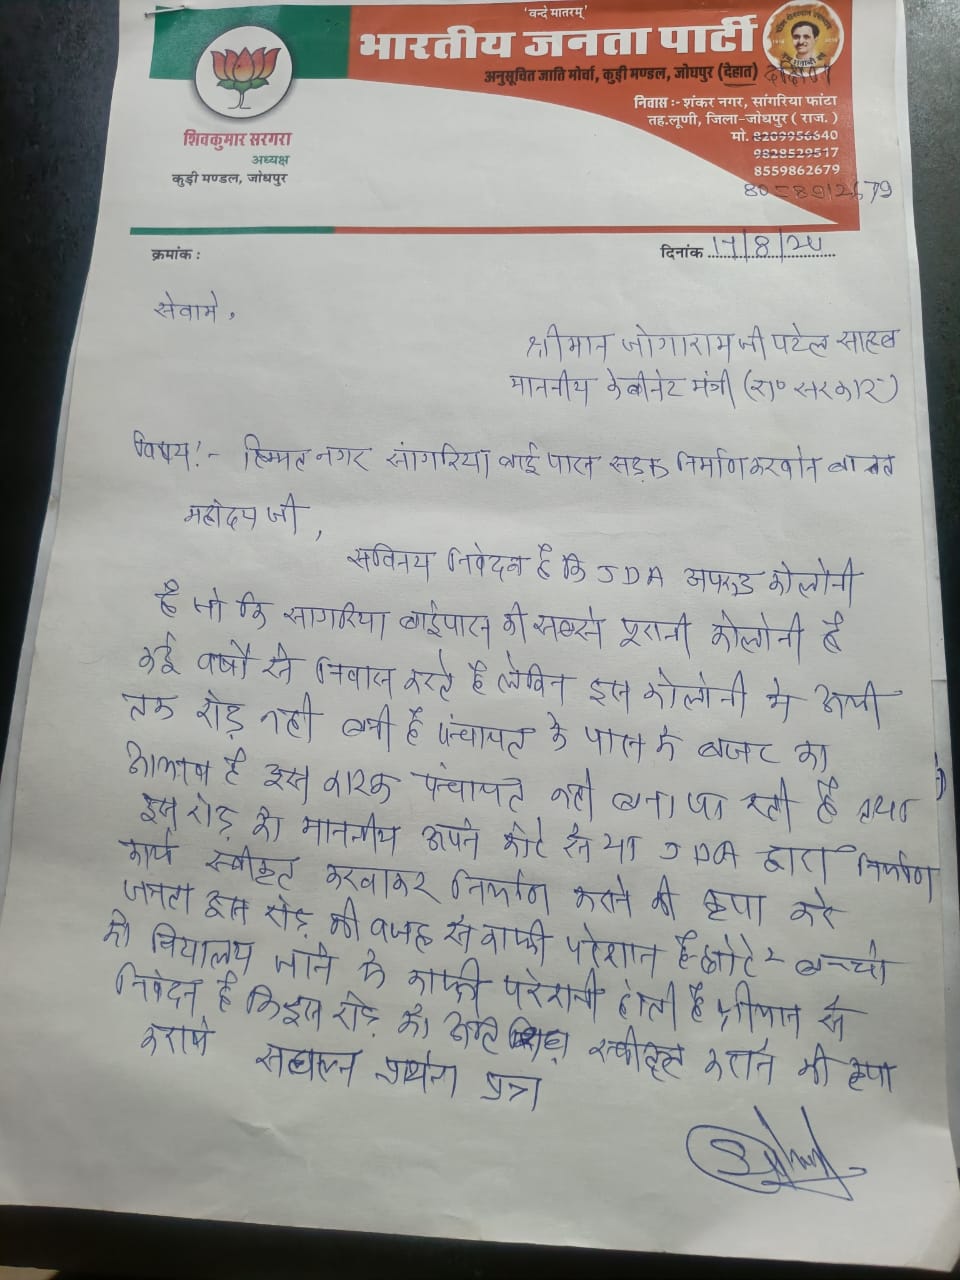 'वन्दे मातरम्'
भारतीय जनता पार्टी
अनुसूचित जाति मोर्चा, कुड़ी मण्डल, जोधपुर (देहात)
निवास :- शंकर नगर, सांगरिया फांटा
तह.लूणी, जिला-जोधपुर ( राज. )
मो. 8209956640
9828529517
8559862679
8058912679
शिवकुमार सरगरा
अध्यक्ष
कुड़ी मण्डल, जोधपुर
क्रमांक :
दिनांक 17/8/24
सेवामे,
श्रीमान जोगारामजी पटेल साहब
माननीय केबीनेट मंत्री (रा० सरकार)
विषय:- हिम्मत नगर सांगरिया बाईपास सड़क निर्माण करवाने बाबत
महोदय जी,
सविनय निवेदन है कि JDA अप्रुड कोलोनी
है जो कि सागरिया बाईपास की सबसे पूरानी कोलोनी है
कई वर्षो से निवास करते है लेकिन इस कोलोनी मे अभी
तक रोड़ नही बनी है पंचायत के पास के बजट का
अभाव है इस कारक पंचायत नही बना पा रही है तथा
इस रोड़ को माननीय अपने कोटे से या JDA द्वारा निर्माण
कार्य स्वीकृत करवाकर निर्माण कराने की कृपा करे
जनता इस रोड़ की वजह से काफी परेशान है छोटे २ बच्चो
को विद्यालय जाने के काफी परेशानी होती है श्रीमान से
निवेदन है कि इस रोड़ को अति स्वीकृत कराने की कृपा
कराये सधन्यवाद प्रार्थना पत्र